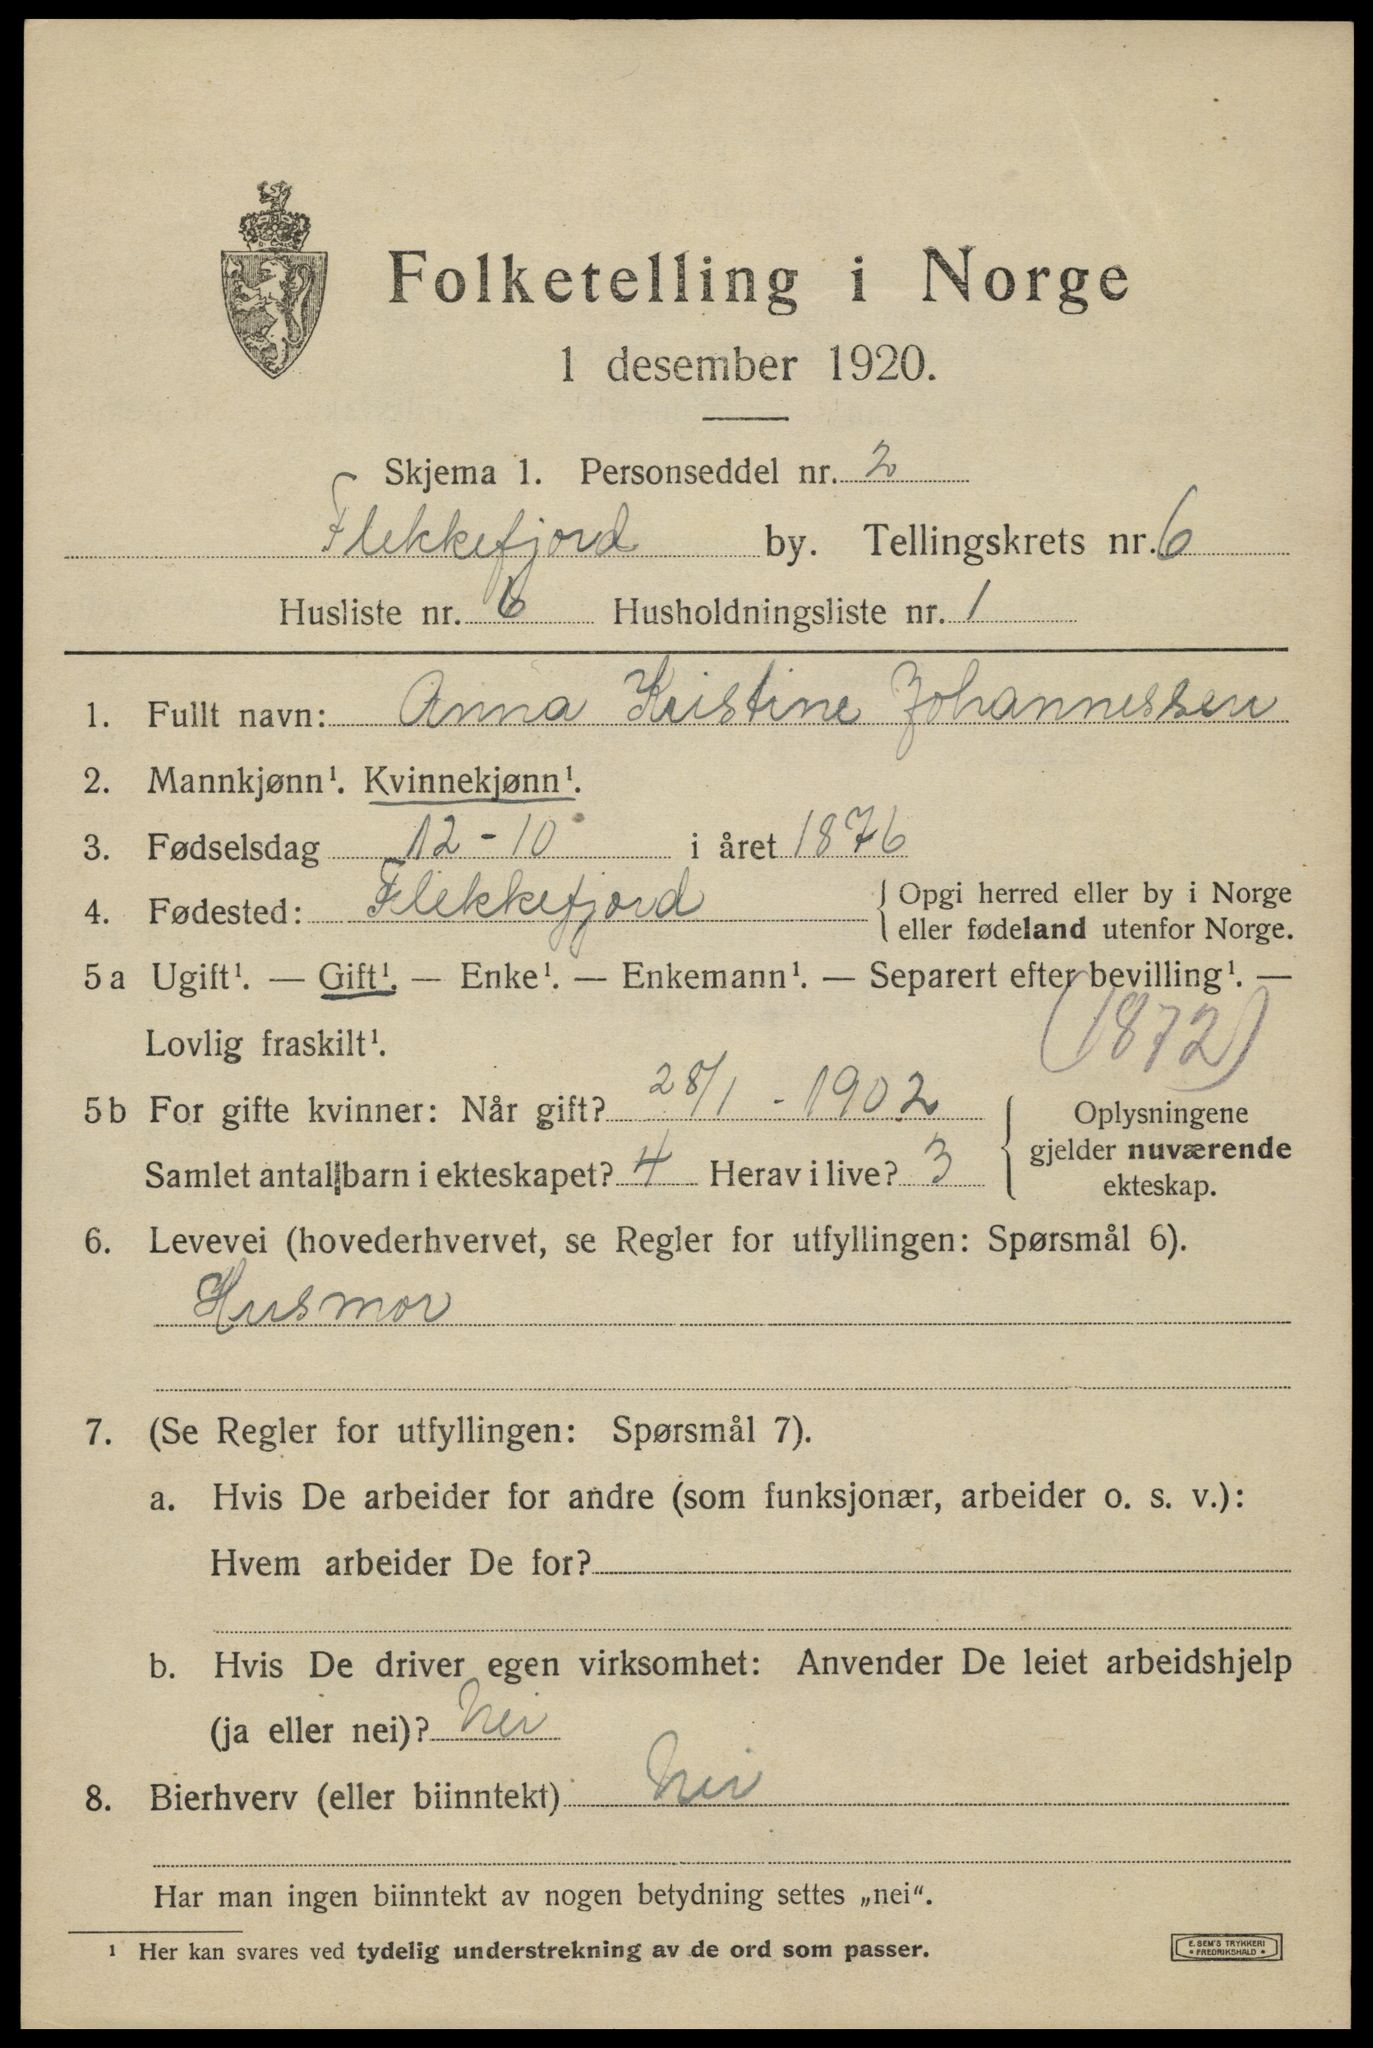 Folketelling i Norge
1 desember 1920.
Skjema 1. Personseddel nr. 2
Flekkefjord by. Tellingskrets nr. 6
Husliste nr. 6 Husholdningsliste nr. 1
1. Fullt navn: Anna Kristine Johannessen
2. Mannkjønn¹. Kvinnekjønn¹.
3. Fødselsdag 12-10 i året 1876
4. Fødested: Flekkefjord { Opgi herred eller by i Norge
eller fødeland utenfor Norge.
5a Ugift¹. — Gift¹. — Enke¹. — Enkemann¹. — Separert efter bevilling¹. —
Lovlig fraskilt¹.
(1872)
5b For gifte kvinner: Når gift? 28/1 - 1902
Samlet antal barn i ekteskapet? 4 Herav i live? 3
{ Oplysningene
gjelder nuværende
ekteskap.
6. Levevei (hovederhvervet, se Regler for utfyllingen: Spørsmål 6).
Husmor
7. (Se Regler for utfyllingen: Spørsmål 7).
a. Hvis De arbeider for andre (som funksjonær, arbeider o. s. v.):
Hvem arbeider De for?
b. Hvis De driver egen virksomhet: Anvender De leiet arbeidshjelp
(ja eller nei)? Nei
8. Bierhverv (eller biinntekt) Nei
Har man ingen biinntekt av nogen betydning settes „nei“.
¹ Her kan svares ved tydelig understrekning av de ord som passer.
E. SEM'S TRYKKERI
• FREDRIKSHALD •